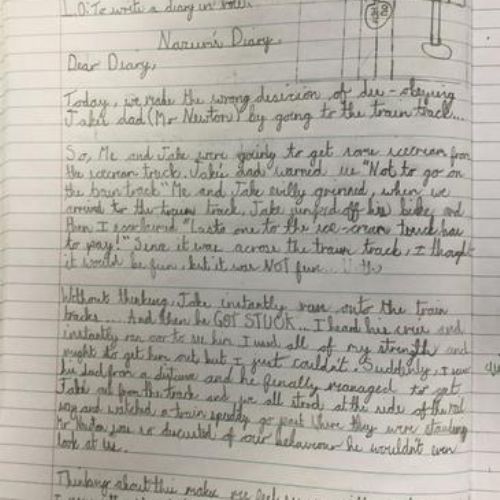 L.O: To write a diary in role.
Nazumi's Diary.
Dear Diary,
Today, we made the wrong desicion of dis-obeying
Jake's dad (Mr Newton) by going to the train track...
So, Me and Jake were going to get some icecream from
the icecream truck. Jake's dad warned us "Not to go on
the train track" Me and Jake evilly grinned, when we
arrived to the train track, Jake jumped off his bike, and
then I exclaimed "Lasts one to the ice-cream truck has
to pay!" Sinse it was across the train track, I thought
it would be fun, but it was NOT fun...
Without thinking, Jake instantly ran onto the train
tracks.... And then he GOT STUCK... I heard his cries and
instantly ran over to see him I used all of my strength and
might to get him out but I just couldn't. Suddenly, I saw
his dad from a distance and he finally managed to get
Jake out from the track and we all stood at the side of the rail
way and watched a train speedy go past where they were standing
Mr Newton was so discusted of our behaviour he wouldn't even
look at us.
Thinking about this makes me feel